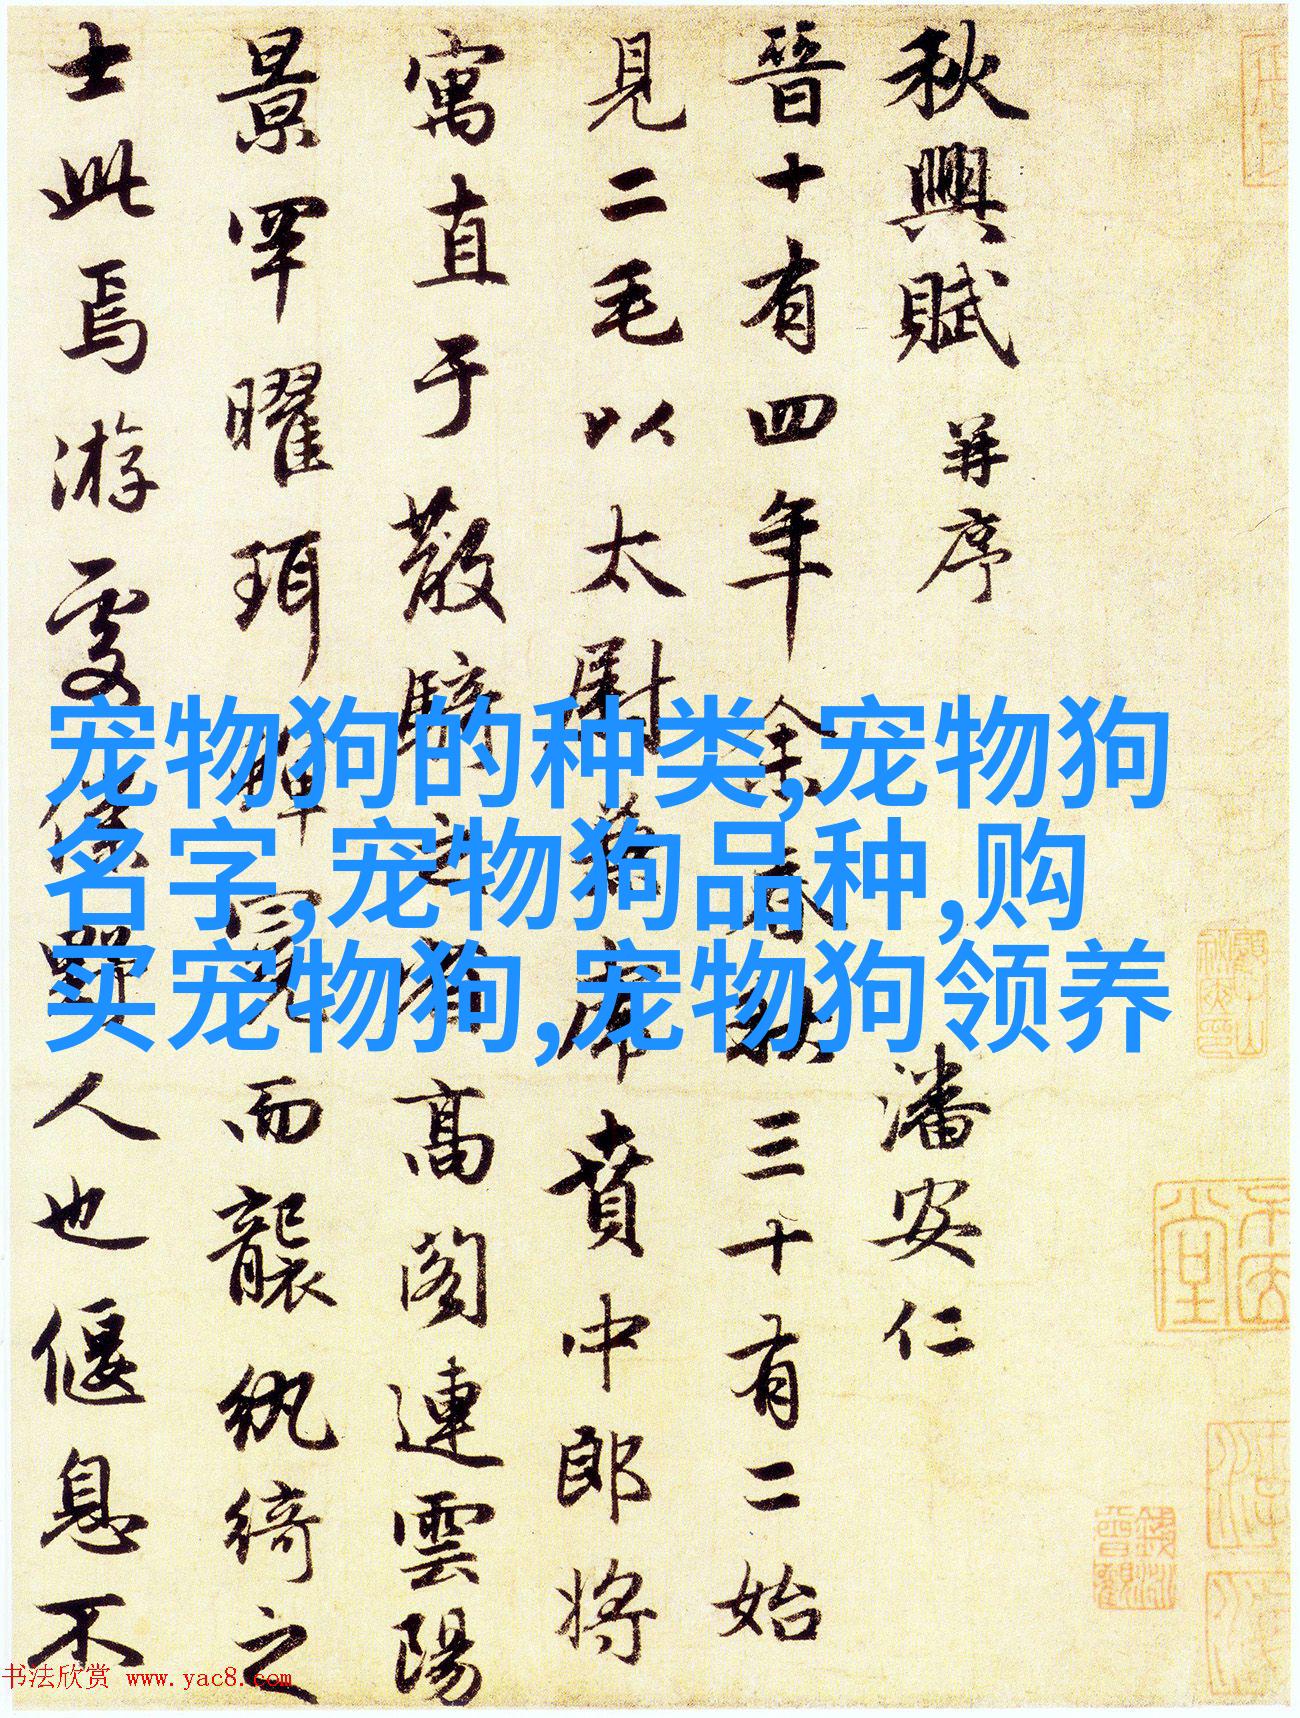 秋興賦 并序 潘安仁
晉十有四年余春秋三十有二始
見二毛以太尉兼虎賁中郎將
寓直于散騎之省高閣連雲陽
景罕曜珥蟬冕而襲紈綺之
士此焉游處僕野人也偃息不
宠物狗的种类,宠物狗
名字,宠物狗品种,购
买宠物狗,宠物狗领养
书法欣赏 www.yac8.com